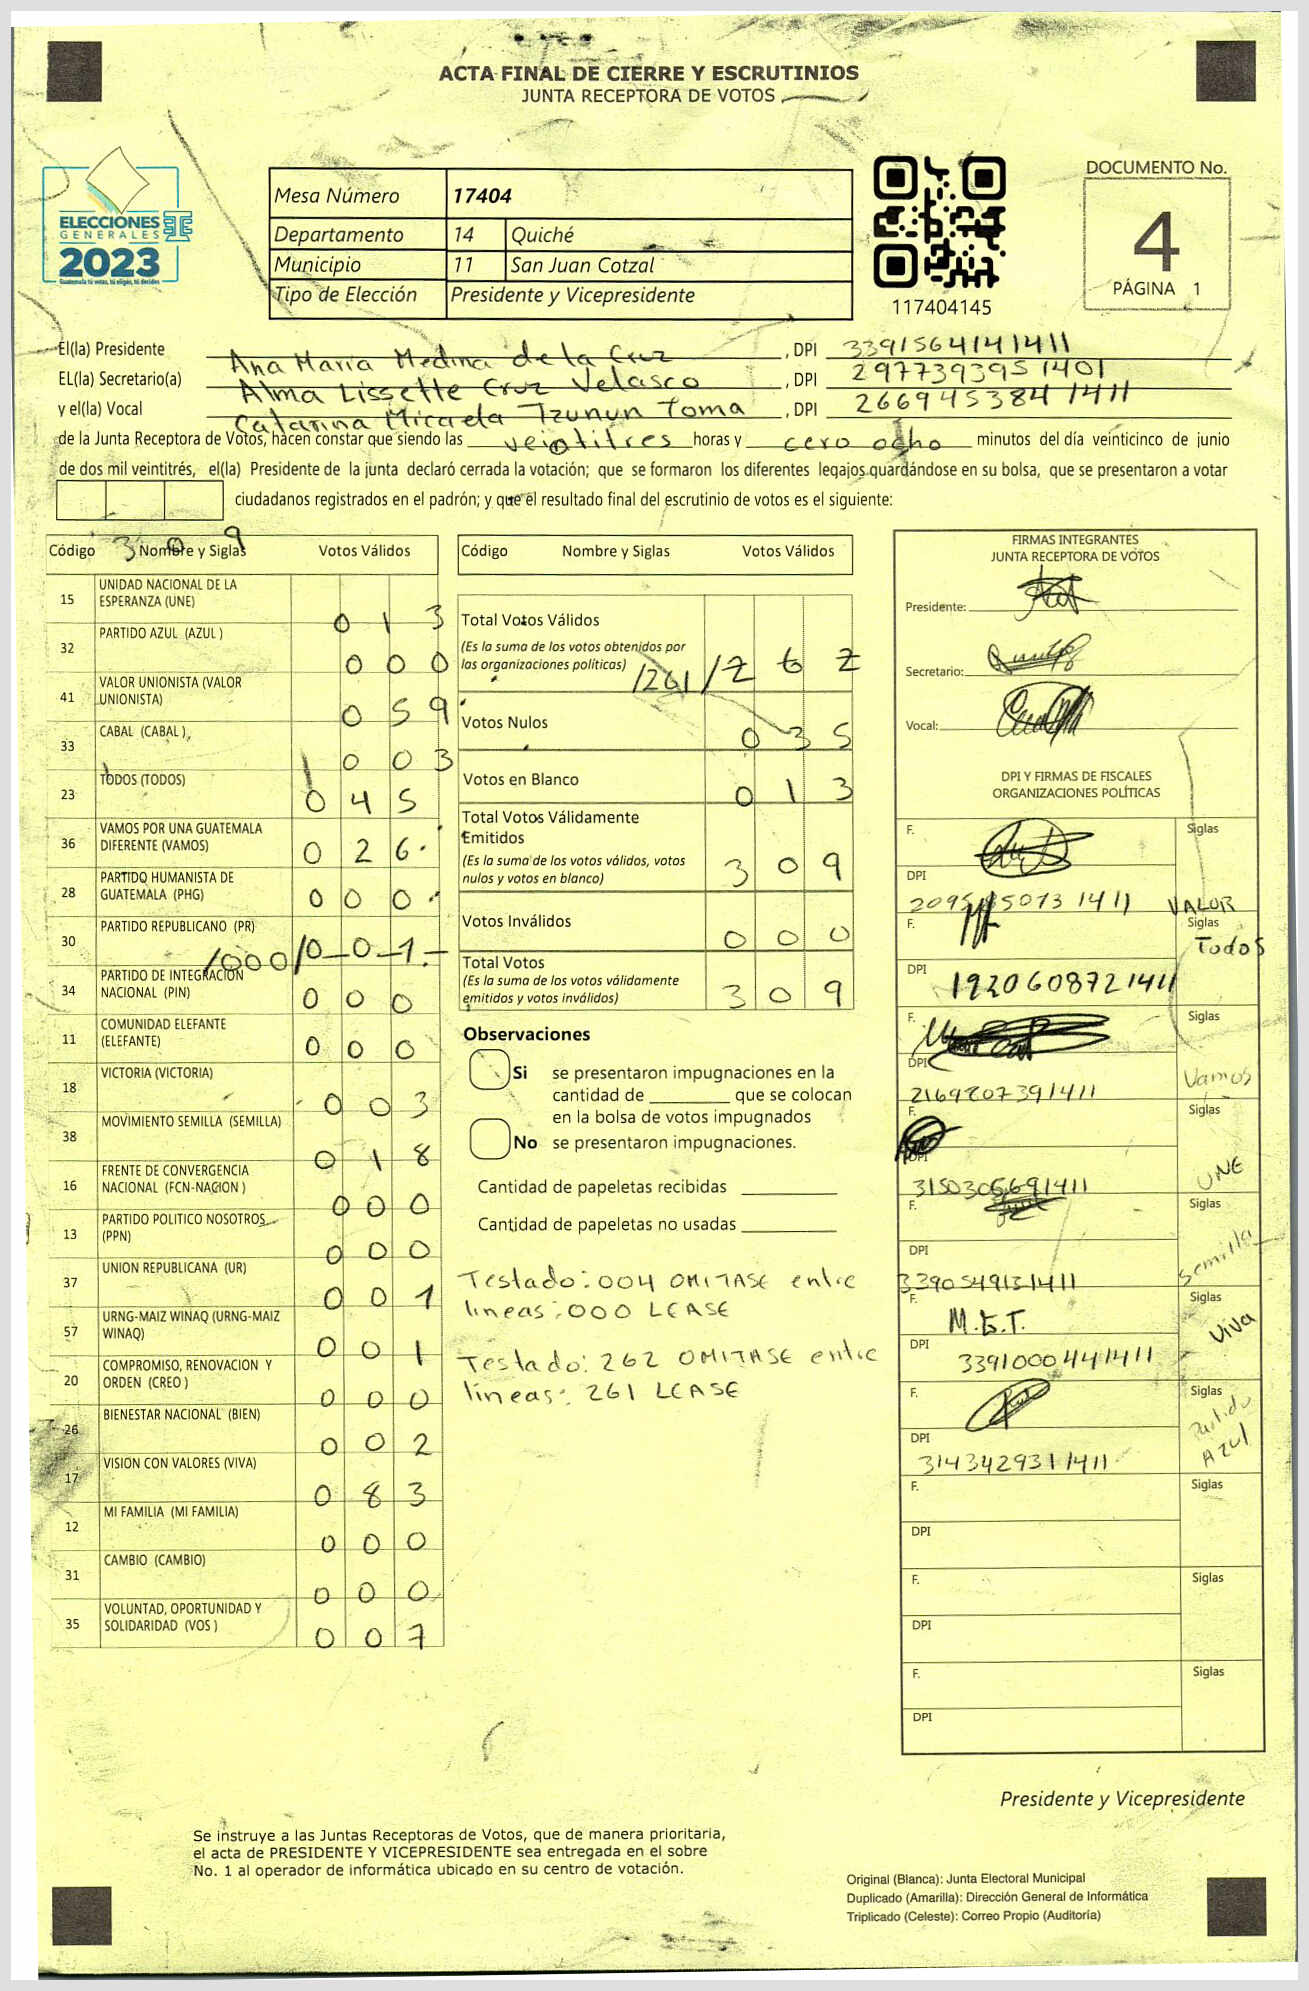 ACTA FINAL DE CIERRE Y ESCRUTINIOS
JUNTA RECEPTORA DE VOTOS
ELECCIONES
GENERALES
2023
Guatemala tú votas, tú eliges, tú decides
Mesa Número 17404
Departamento 14 Quiché
Municipio 11 San Juan Cotzal
Tipo de Elección Presidente y Vicepresidente
117404145
DOCUMENTO No.
4
PÁGINA 1
El(la) Presidente Ana Maria Medina de la Cruz , DPI 3391564141411
EL(la) Secretario(a) Alma Lissette Cruz Velasco , DPI 2977393951401
y el(la) Vocal Catarina Micaela Tzunun Toma , DPI 2669453841411
de la Junta Receptora de Votos, hacen constar que siendo las veintitres horas y cero ocho minutos del día veinticinco de junio
de dos mil veintitrés, el(la) Presidente de la junta declaró cerrada la votación; que se formaron los diferentes legajos guardándose en su bolsa, que se presentaron a votar
ciudadanos registrados en el padrón; y que el resultado final del escrutinio de votos es el siguiente:
309
Código Nombre y Siglas Votos Válidos
15 UNIDAD NACIONAL DE LA ESPERANZA (UNE) 013
32 PARTIDO AZUL (AZUL ) 000
41 VALOR UNIONISTA (VALOR UNIONISTA) 059
33 CABAL (CABAL ) 003
23 TODOS (TODOS) 045
36 VAMOS POR UNA GUATEMALA DIFERENTE (VAMOS) 026
28 PARTIDO HUMANISTA DE GUATEMALA (PHG) 000
30 PARTIDO REPUBLICANO (PR) /000/ 0-0-1-
34 PARTIDO DE INTEGRACIÓN NACIONAL (PIN) 000
11 COMUNIDAD ELEFANTE (ELEFANTE) 000
18 VICTORIA (VICTORIA) 003
38 MOVIMIENTO SEMILLA (SEMILLA) 018
16 FRENTE DE CONVERGENCIA NACIONAL (FCN-NACION ) 000
13 PARTIDO POLITICO NOSOTROS (PPN) 000
37 UNION REPUBLICANA (UR) 001
57 URNG-MAIZ WINAQ (URNG-MAIZ WINAQ) 001
20 COMPROMISO, RENOVACION Y ORDEN (CREO ) 000
26 BIENESTAR NACIONAL (BIEN) 002
17 VISION CON VALORES (VIVA) 083
12 MI FAMILIA (MI FAMILIA) 000
31 CAMBIO (CAMBIO) 000
35 VOLUNTAD, OPORTUNIDAD Y SOLIDARIDAD (VOS ) 007
Código Nombre y Siglas Votos Válidos
Total Votos Válidos
(Es la suma de los votos obtenidos por
las organizaciones políticas) /261/ 262
Votos Nulos 035
Votos en Blanco 013
Total Votos Válidamente
Emitidos
(Es la suma de los votos válidos, votos
nulos y votos en blanco) 309
Votos Inválidos 000
Total Votos
(Es la suma de los votos válidamente
emitidos y votos inválidos) 309
Observaciones
Si se presentaron impugnaciones en la
cantidad de ________ que se colocan
en la bolsa de votos impugnados
No se presentaron impugnaciones.
Cantidad de papeletas recibidas
Cantidad de papeletas no usadas
Testado: 004 OMITASE entre
lineas: 000 LEASE
Testado: 262 OMITASE entre
lineas: 261 LEASE
FIRMAS INTEGRANTES
JUNTA RECEPTORA DE VOTOS
Presidente:
Secretario:
Vocal:
DPI Y FIRMAS DE FISCALES
ORGANIZACIONES POLÍTICAS
F. Siglas
DPI
1411 VALOR
F. Siglas
Todos
DPI 1920608721411
F. Siglas
DPI
2169207391411 Vamos
F. Siglas
DPI
3150305691411 UNE
F. Siglas
DPI
3390549131411 semilla
F. M.E.T. Siglas
DPI 3391000441411 Viva
F. Siglas
DPI
3143429311411 Partido Azul
F. Siglas
DPI
F. Siglas
DPI
F. Siglas
DPI
Presidente y Vicepresidente
Se instruye a las Juntas Receptoras de Votos, que de manera prioritaria,
el acta de PRESIDENTE Y VICEPRESIDENTE sea entregada en el sobre
No. 1 al operador de informática ubicado en su centro de votación.
Original (Blanca): Junta Electoral Municipal
Duplicado (Amarilla): Dirección General de Informática
Triplicado (Celeste): Correo Propio (Auditoría)